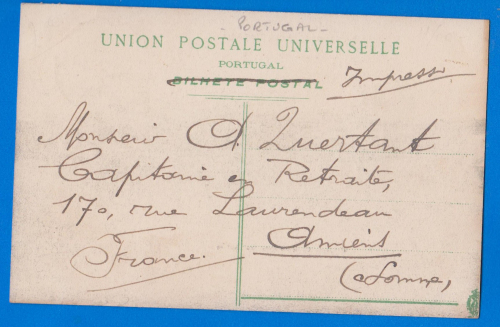 - PORTUGAL -
UNION POSTALE UNIVERSELLE
PORTUGAL
BILHETE POSTAL Impresso
Monsieur A Quertant
Capitaine en Retraite,
170, rue Laurendeau
Amiens
France. (Somme)